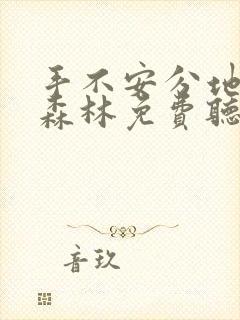 手不安分地
森林免費聽
音玖